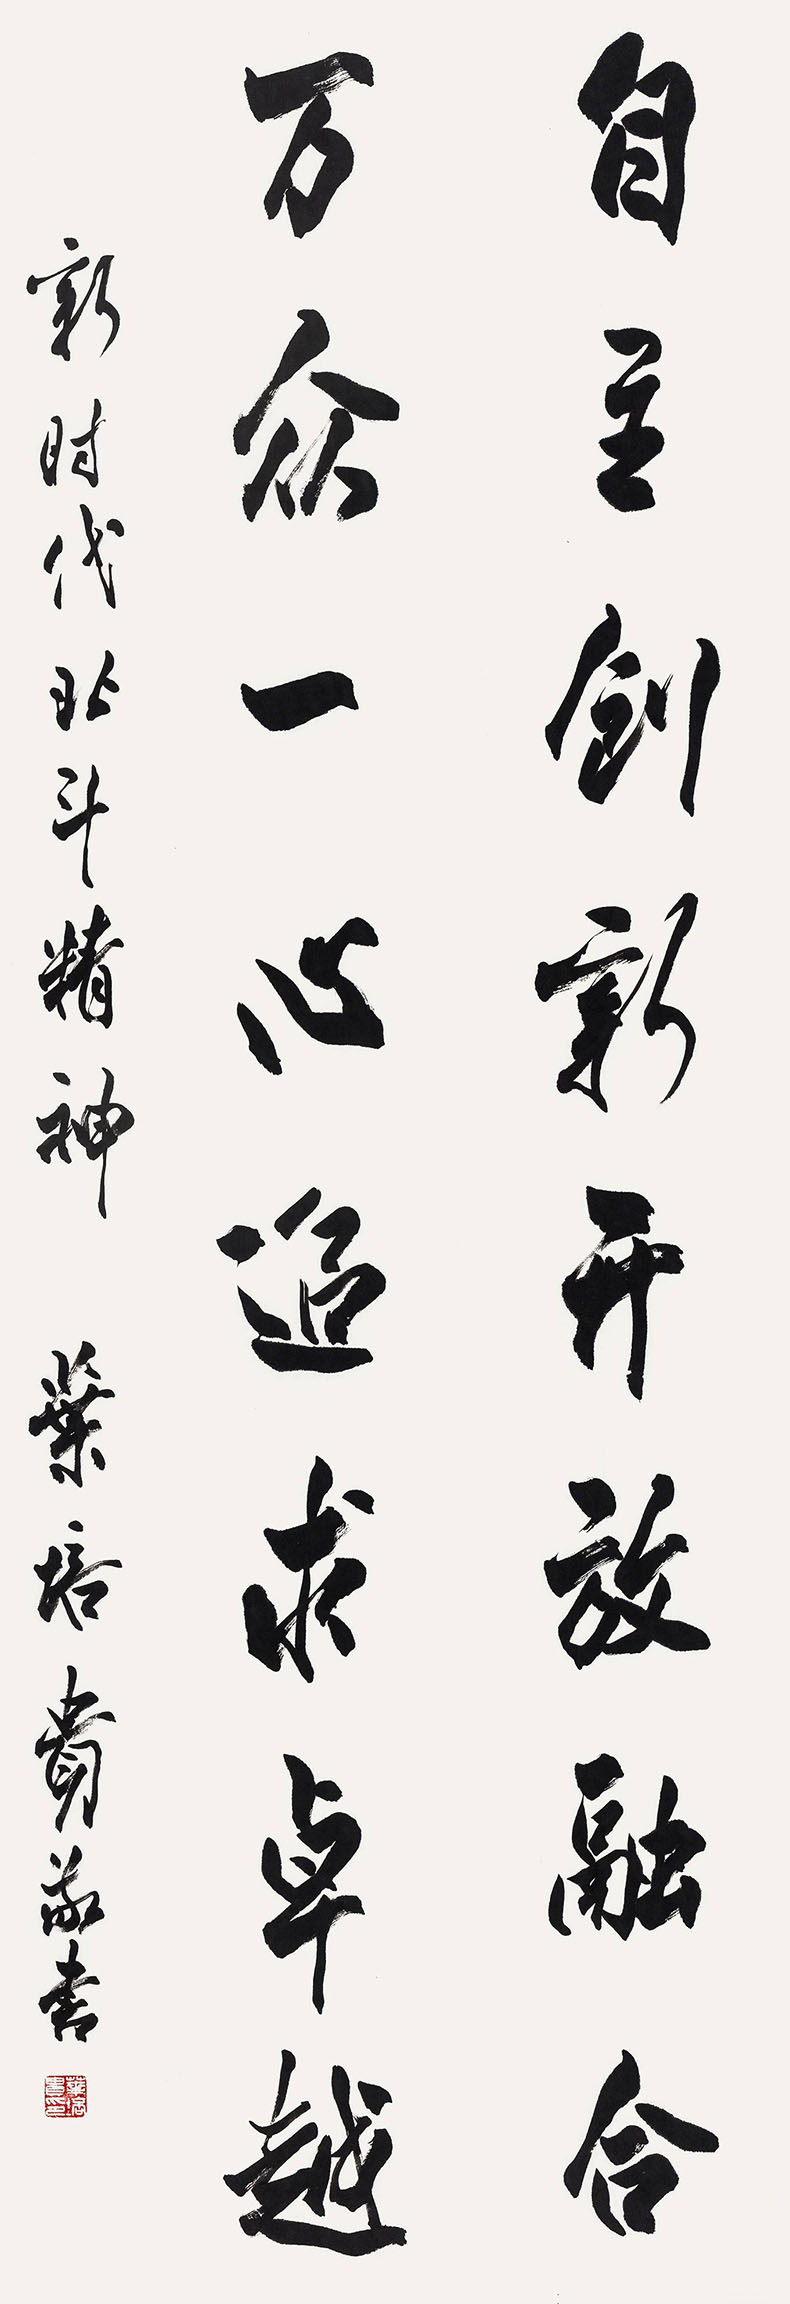 自主创新开放融合
万众一心追求卓越
新时代北斗精神 葉培貴敬书